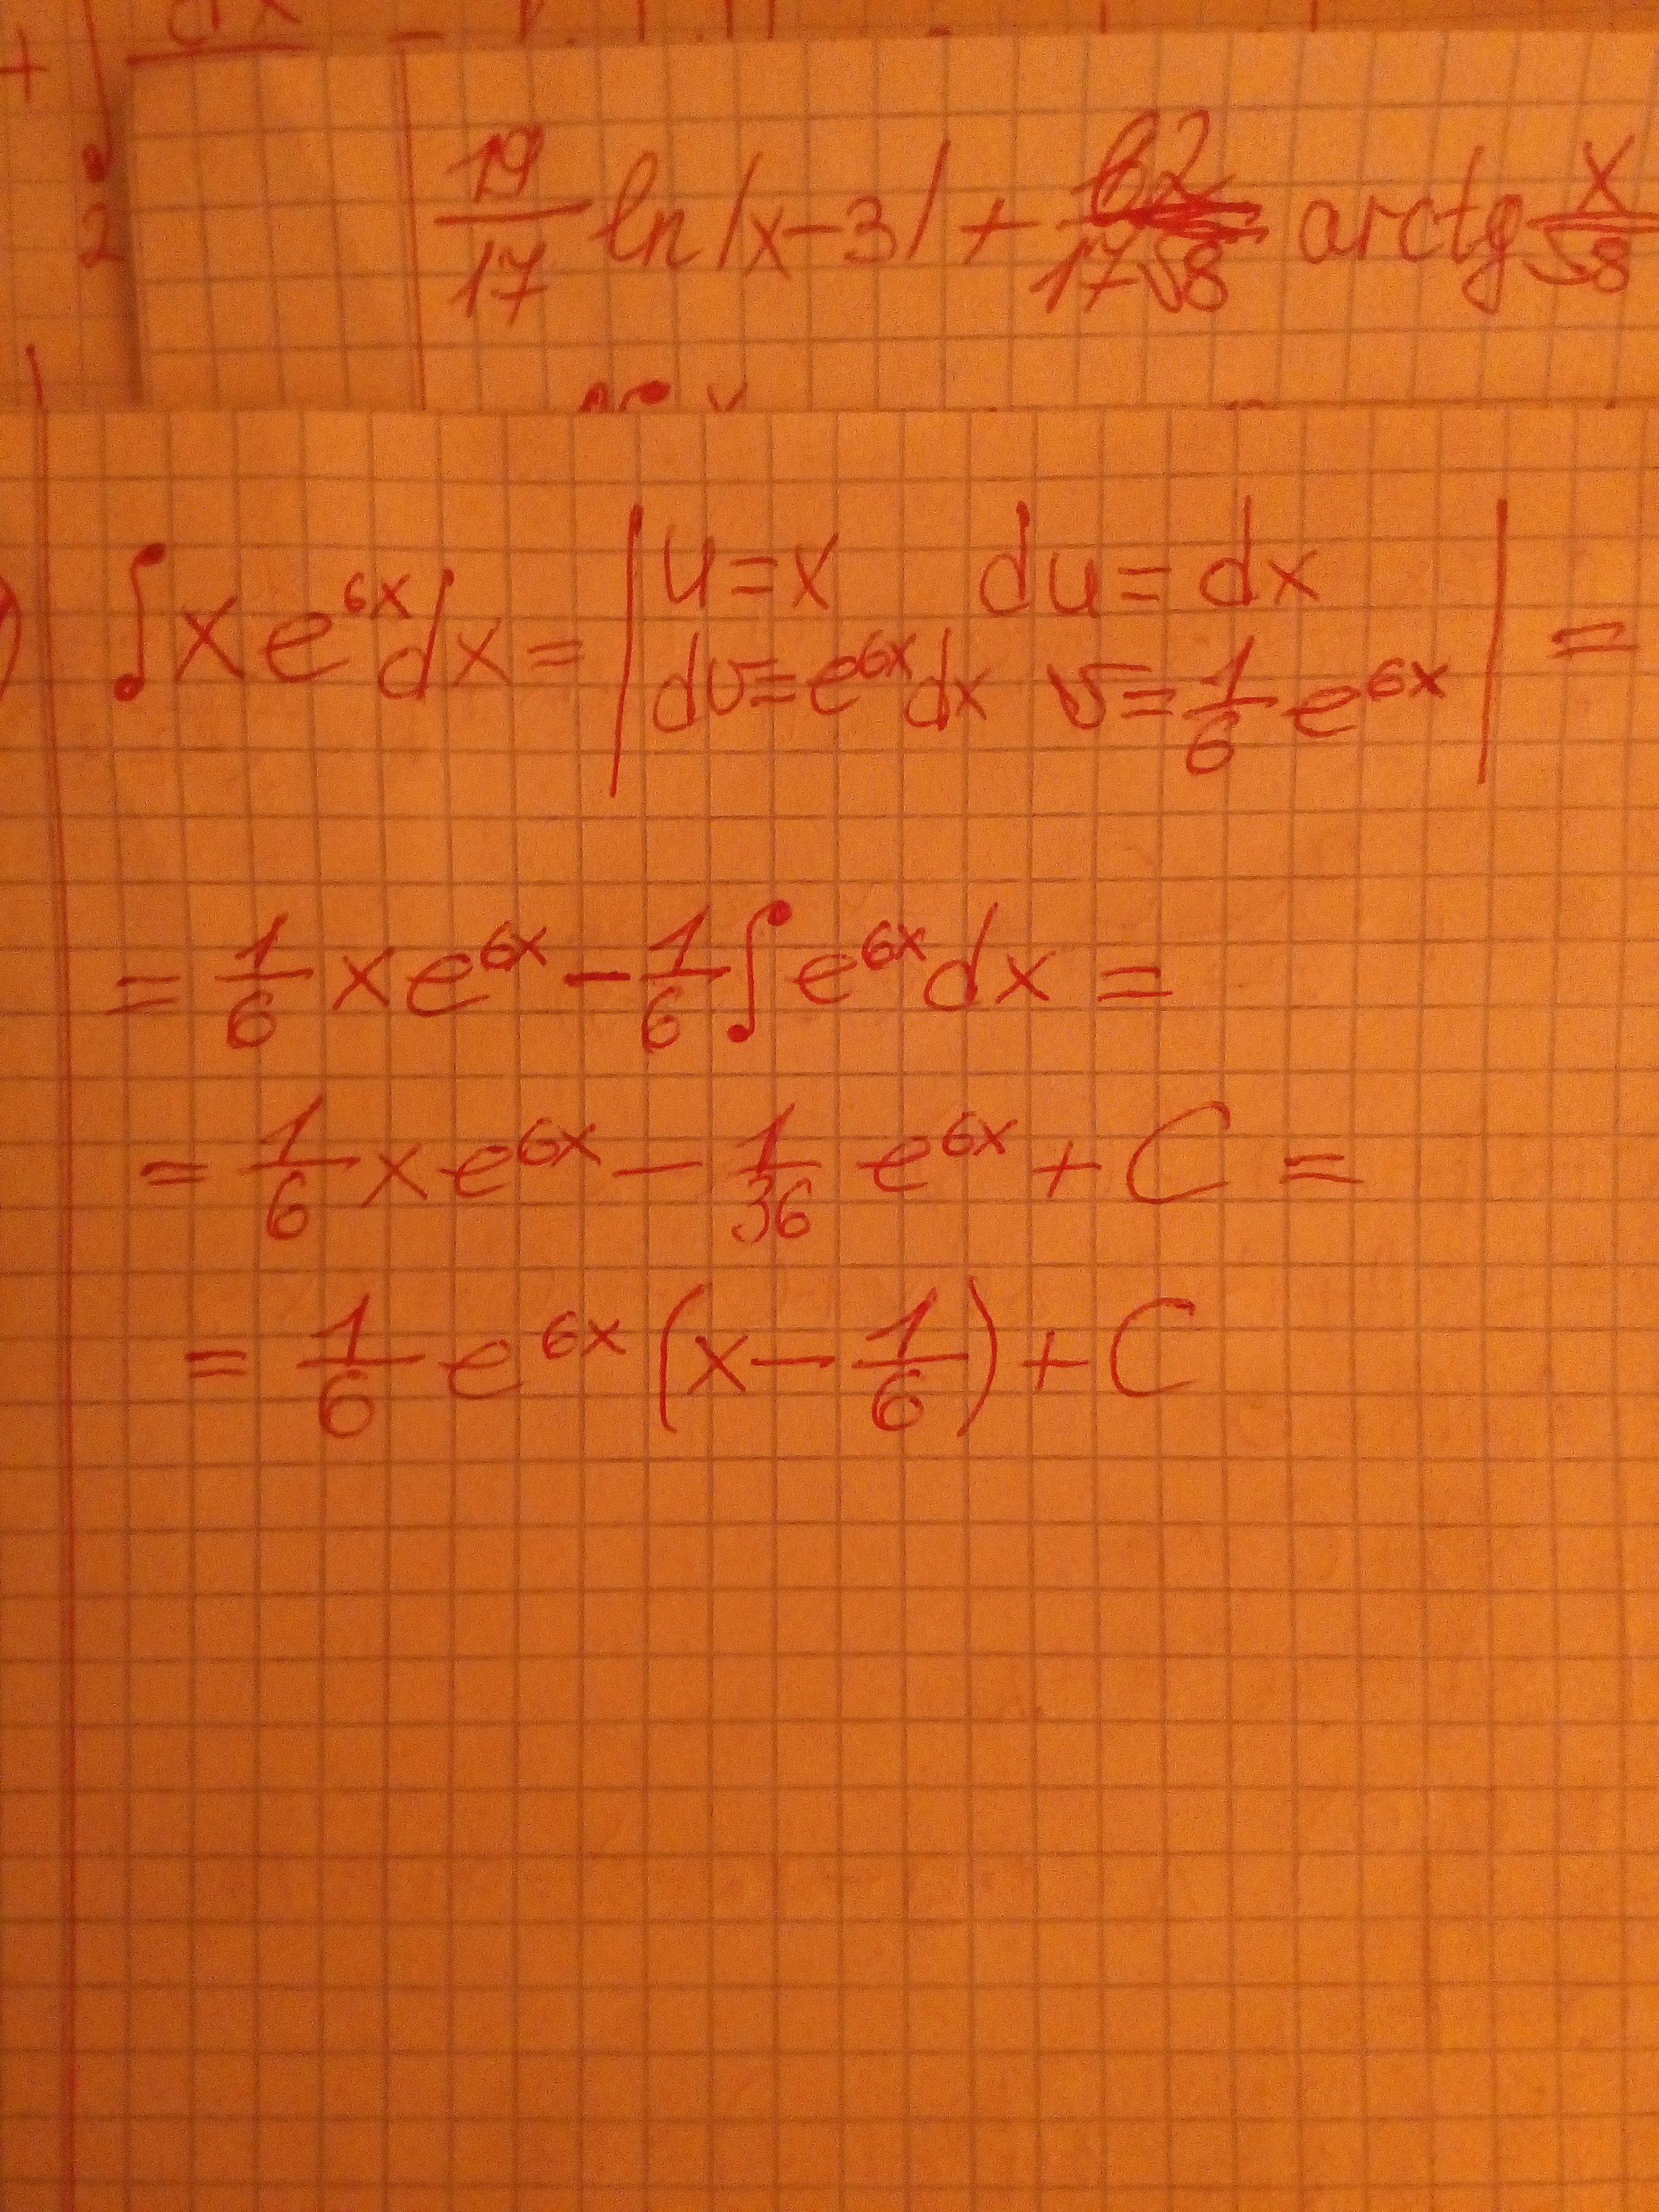 19/17 ln|x-3| + 62/17√8 arctg x/√8
∫xe^{6x}dx = | u=x du=dx
dv=e^{6x}dx v=1/6 e^{6x} | =
= 1/6 xe^{6x} - 1/6 ∫e^{6x}dx =
= 1/6 xe^{6x} - 1/36 e^{6x} + C =
= 1/6 e^{6x} (x - 1/6) + C